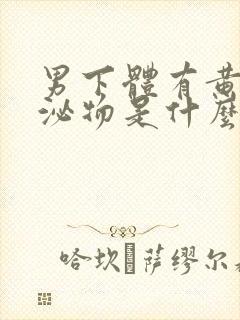 男下體有黄
泌物是什麼
哈坎·萨缪尔